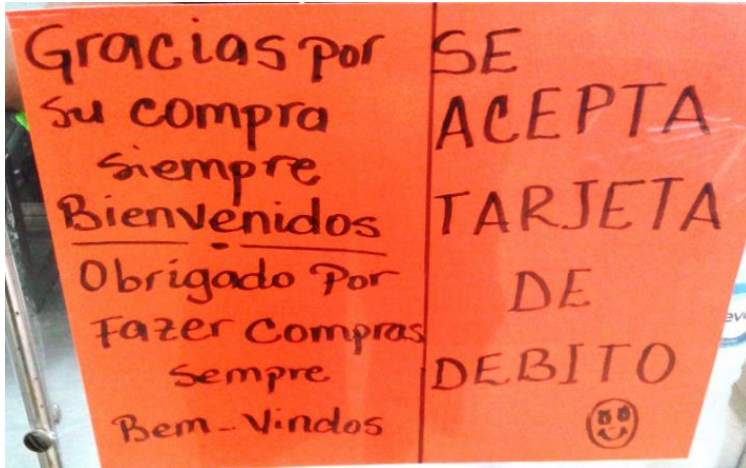 Gracias por
su compra
siempre
Bienvenidos
Obrigado Por
Fazer Compras
sempre
Bem-Vindos
SE
ACEPTA
TARJETA
DE
DEBITO